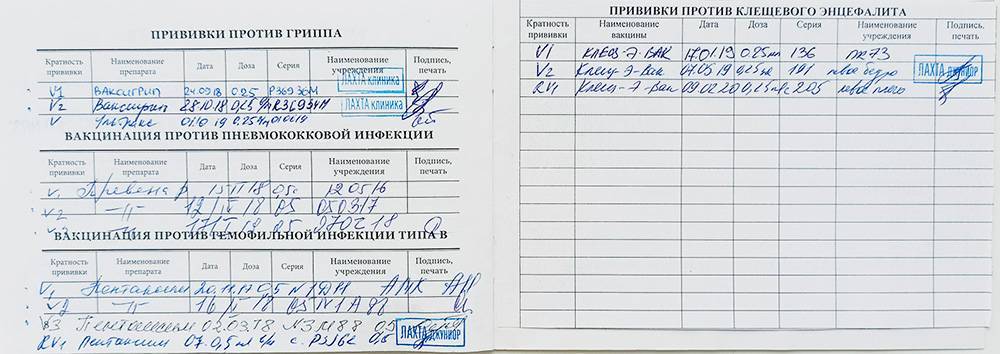 ПРИВИВКИ ПРОТИВ ГРИППА
Кратность прививки Наименование препарата Дата Доза Серия Наименование учреждения Подпись, печать
V1 ВАКСИГРИП 24.09.18 0.25 P3G936M ЛАХТА клиника
V2 Ваксигрип 28.10.18 0,25 ЛАХТА клиника
V Ультрикс 01.10.19 0.25
ВАКЦИНАЦИЯ ПРОТИВ ПНЕВМОКОККОВОЙ ИНФЕКЦИИ
Кратность прививки Наименование препарата Дата Доза Серия Наименование учреждения Подпись, печать
V1 Превенар 18 120516
V2 -"- 12/IV 18 05 050317
-"- 18 05 070218
ВАКЦИНАЦИЯ ПРОТИВ ГЕМОФИЛЬНОЙ ИНФЕКЦИИ ТИПА В
Кратность прививки Наименование препарата Дата Доза Серия Наименование учреждения Подпись, печать
V1 Пентаксим 20.11.17 0,5
V2 -"- 16 18 05
V3 Пентаксим 02.03.18 N3M88 0,5 ЛАХТА ДЖУНИОР
RV1 Пентаксим 0,5
ПРИВИВКИ ПРОТИВ КЛЕЩЕВОГО ЭНЦЕФАЛИТА
Кратность прививки Наименование вакцины Дата Доза Серия Наименование учреждения Подпись, печать
V1 КЛЕЩ-Э-ВАК 17.01.19 0.25мл 136
V2 Клещ-Э-Вак 07.05.19 0,25мл 191 левое бедро ЛАХТА ДЖУНИОР
RV1 Клещ-Э-Вак 09.02.20 0,25мл 205 левое плечо